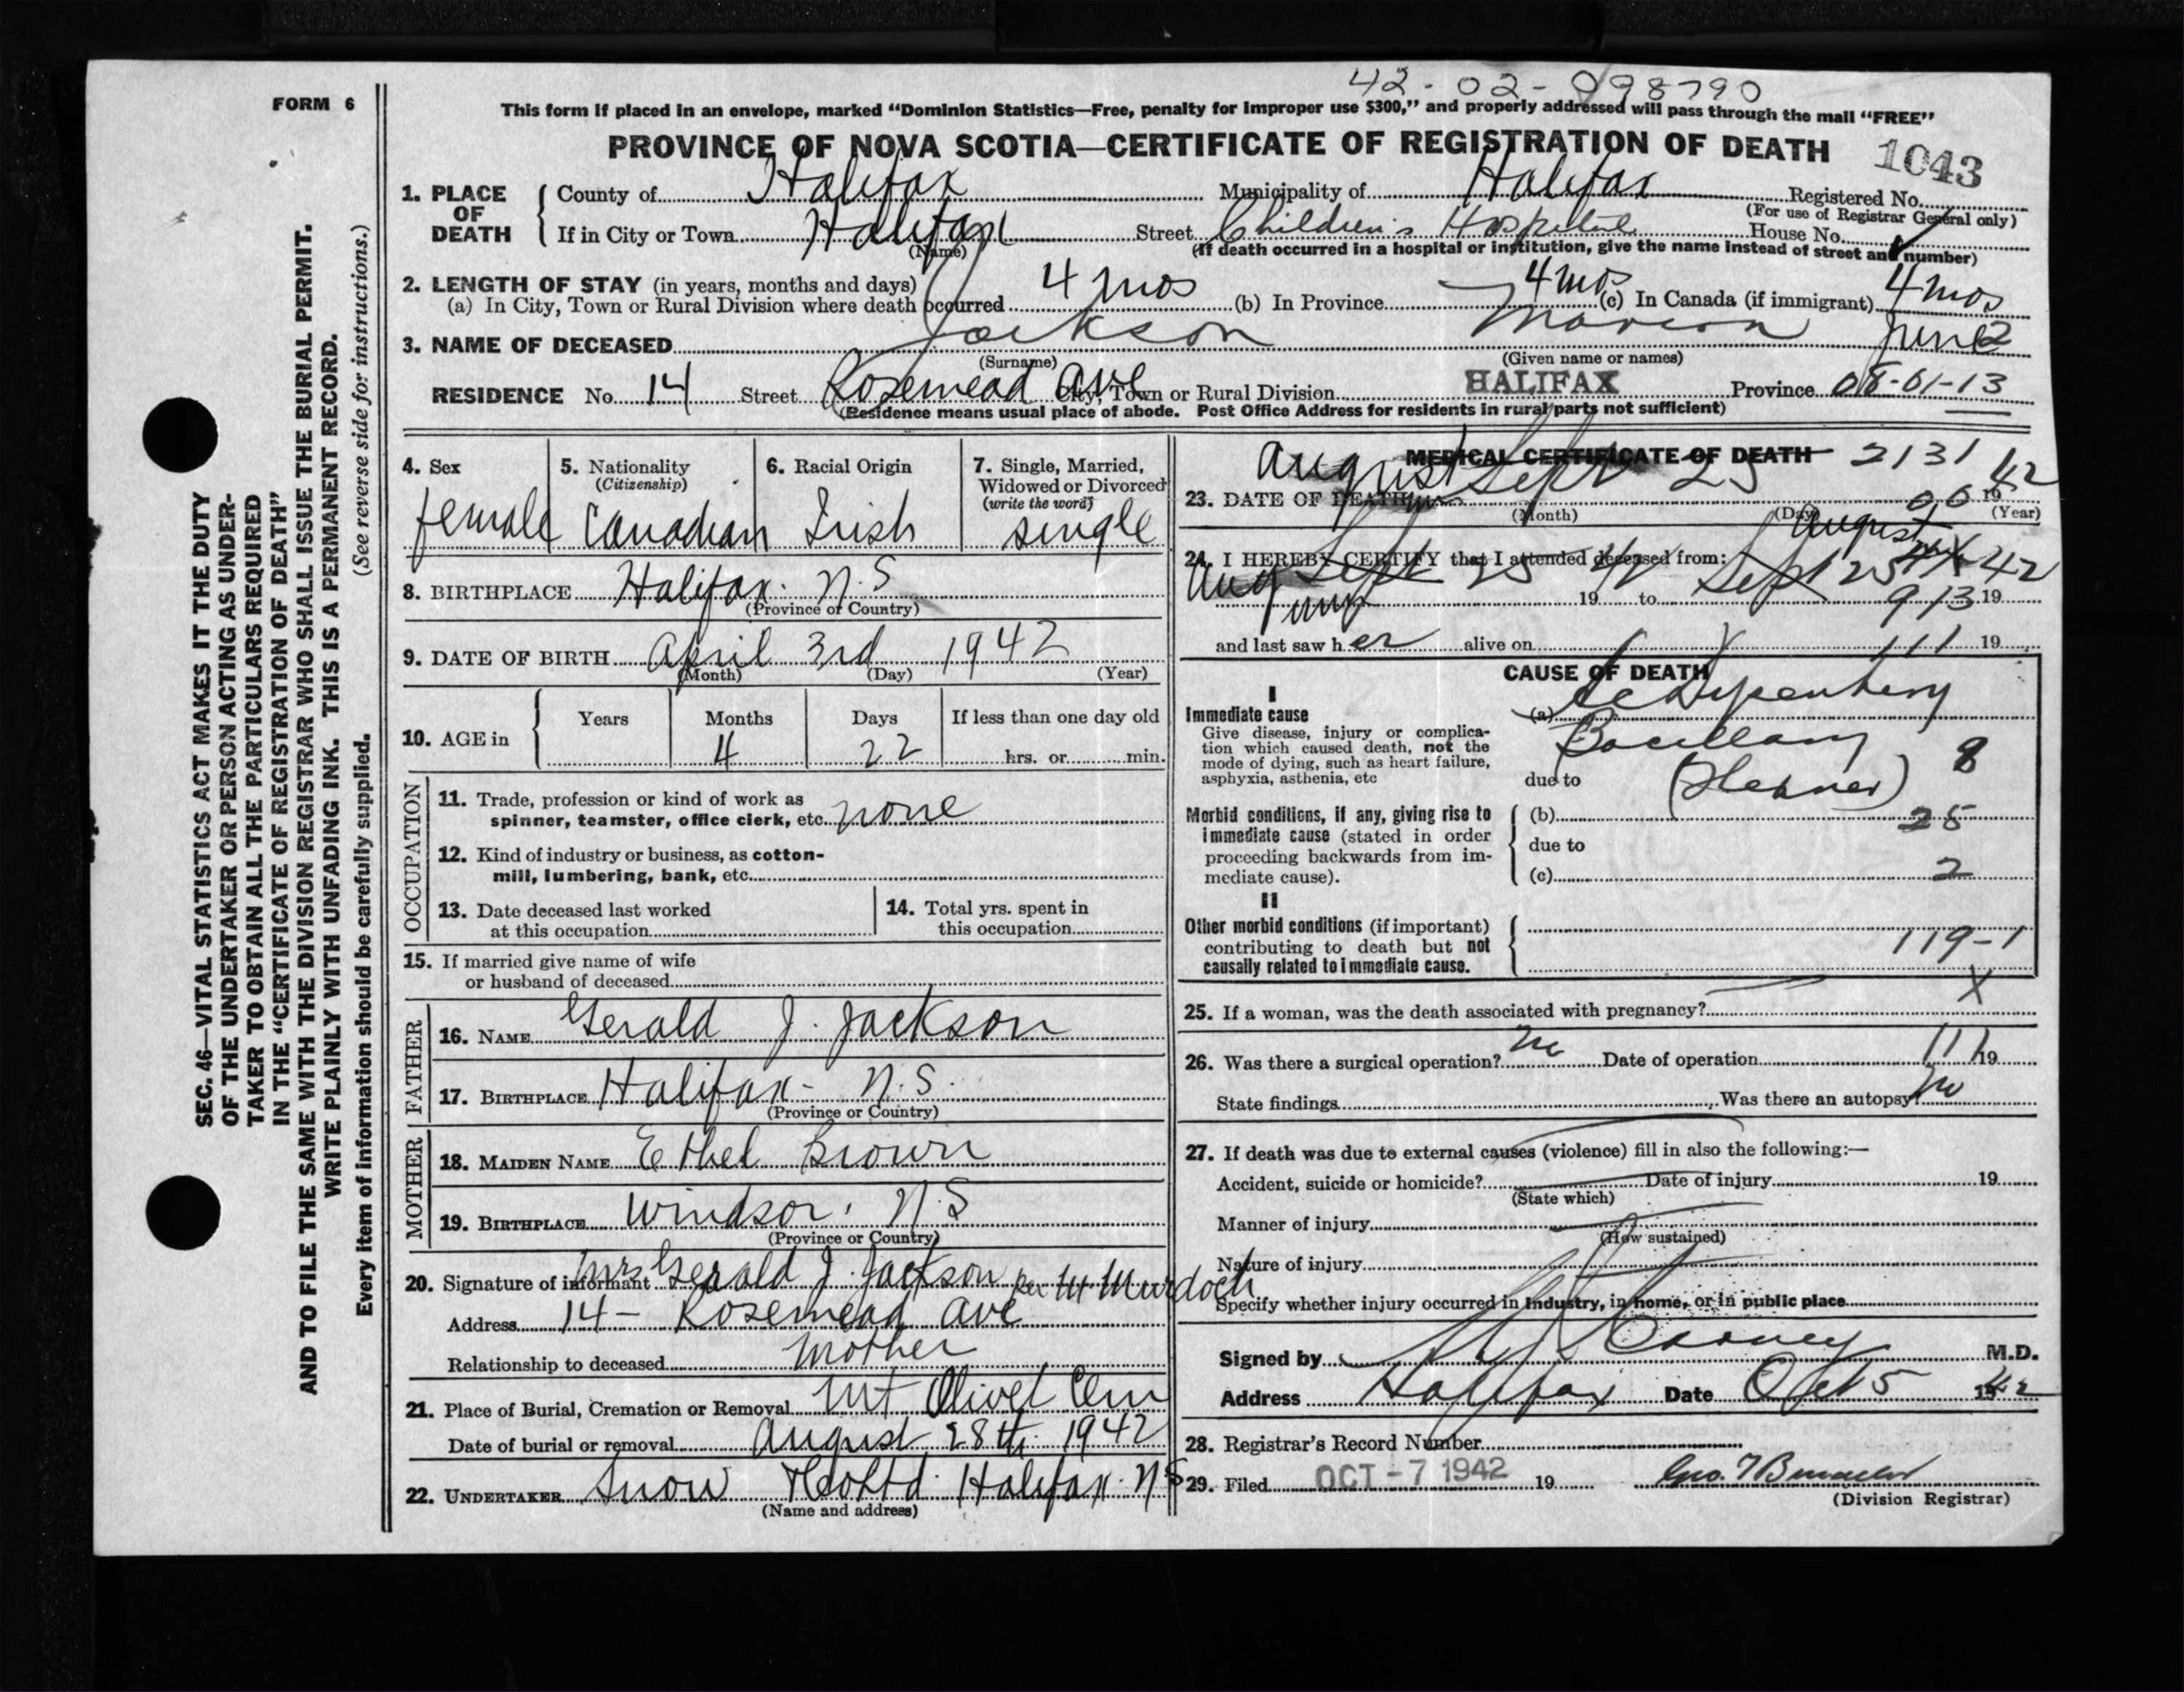 42-02-098790
FORM 6
This form if placed in an envelope, marked “Dominion Statistics—Free, penalty for improper use $300,” and properly addressed will pass through the mail “FREE”
PROVINCE OF NOVA SCOTIA—CERTIFICATE OF REGISTRATION OF DEATH 1043
1. PLACE OF DEATH { County of Halifax Municipality of Halifax Registered No.
(For use of Registrar General only)
If in City or Town Halifax Street Children's Hospital House No.
(Name) (If death occurred in a hospital or institution, give the name instead of street and number)
2. LENGTH OF STAY (in years, months and days)
(a) In City, Town or Rural Division where death occurred 4 mos (b) In Province 4 mos (c) In Canada (if immigrant) 4 mos
3. NAME OF DECEASED Jackson Marion June
(Surname) (Given name or names)
RESIDENCE No. 14 Street Rosemead Ave City, Town or Rural Division HALIFAX Province 08-01-13
(Residence means usual place of abode. Post Office Address for residents in rural parts not sufficient)
4. Sex 5. Nationality (Citizenship) 6. Racial Origin 7. Single, Married, Widowed or Divorced (write the word)
female Canadian Irish single
8. BIRTHPLACE Halifax. N.S
(Province or Country)
9. DATE OF BIRTH April 3rd 1942
(Month) (Day) (Year)
10. AGE in { Years Months Days If less than one day old
4 22 hrs. or min.
OCCUPATION
11. Trade, profession or kind of work as spinner, teamster, office clerk, etc. none
12. Kind of industry or business, as cotton-mill, lumbering, bank, etc.
13. Date deceased last worked at this occupation
14. Total yrs. spent in this occupation
15. If married give name of wife or husband of deceased
FATHER
16. NAME Gerald J. Jackson
17. BIRTHPLACE Halifax- N.S.
(Province or Country)
MOTHER
18. MAIDEN NAME Ethel Brown
19. BIRTHPLACE Windsor. N.S
(Province or Country)
20. Signature of informant Mrs Gerald J. Jackson per M Murdoch
Address 14- Rosemead Ave
Relationship to deceased Mother
21. Place of Burial, Cremation or Removal Mt Olivet Cem
Date of burial or removal August 28th 1942
22. UNDERTAKER Snow & Co Ltd Halifax. NS
(Name and address)
MEDICAL CERTIFICATE OF DEATH 2131
23. DATE OF DEATH August Sept 25 19 42
(Month) (Day) (Year)
24. I HEREBY CERTIFY that I attended deceased from:
Aug Sept 25 19 42 to August Sept 25 19 42
913
and last saw her alive on 111 19
CAUSE OF DEATH
I
Immediate cause
Give disease, injury or complication which caused death, not the mode of dying, such as heart failure, asphyxia, asthenia, etc
(a) Ac Dysentery
Bacillary
due to (Flexner) 8
Morbid conditions, if any, giving rise to immediate cause (stated in order proceeding backwards from immediate cause).
(b) 25
due to
(c) 2
II
Other morbid conditions (if important) contributing to death but not causally related to immediate cause.
119-1
25. If a woman, was the death associated with pregnancy? X
26. Was there a surgical operation? no Date of operation 111 19
State findings Was there an autopsy? no
27. If death was due to external causes (violence) fill in also the following:—
Accident, suicide or homicide? Date of injury 19
(State which)
Manner of injury
(How sustained)
Nature of injury
Specify whether injury occurred in industry, in home, or in public place
Signed by M.D.
Address Halifax Date Oct 5 1942
28. Registrar's Record Number
29. Filed OCT - 7 1942 19
(Division Registrar)
SEC. 46—VITAL STATISTICS ACT MAKES IT THE DUTY
OF THE UNDERTAKER OR PERSON ACTING AS UNDER-
TAKER TO OBTAIN ALL THE PARTICULARS REQUIRED
IN THE “CERTIFICATE OF REGISTRATION OF DEATH”
AND TO FILE THE SAME WITH THE DIVISION REGISTRAR WHO SHALL ISSUE THE BURIAL PERMIT.
WRITE PLAINLY WITH UNFADING INK. THIS IS A PERMANENT RECORD.
Every item of information should be carefully supplied. (See reverse side for instructions.)